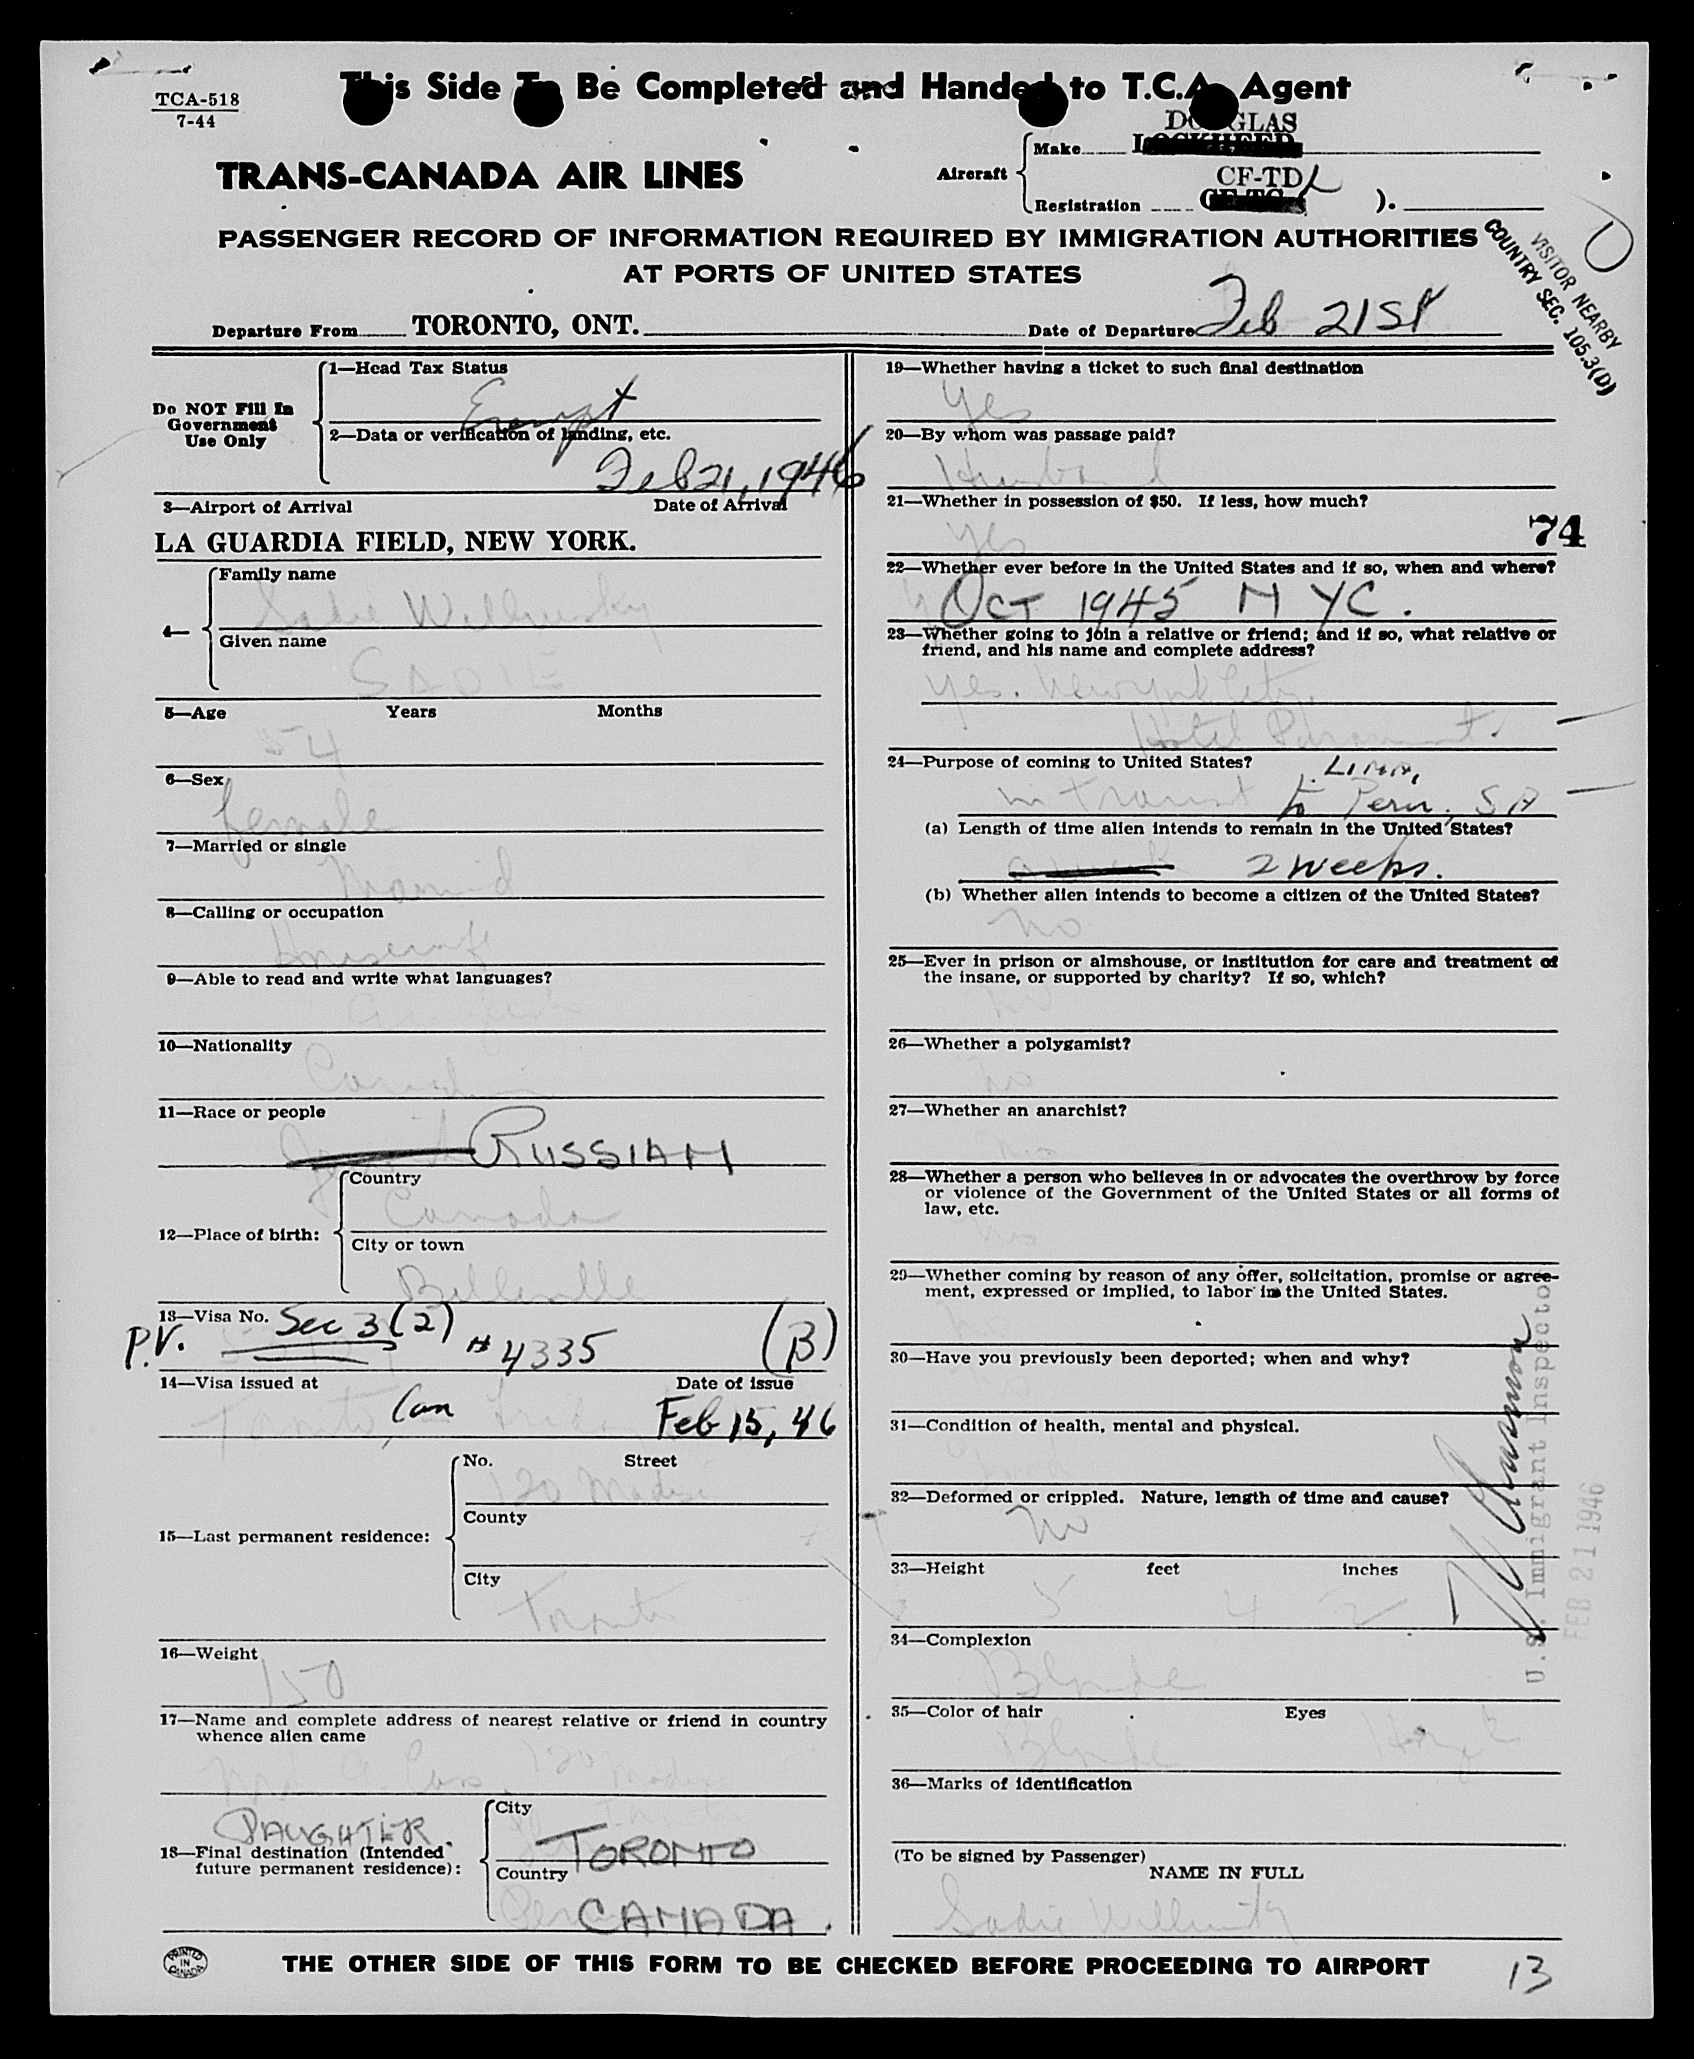 This Side To Be Completed and Handed to T.C.A. Agent
TCA-518
7-44
DOUGLAS
LOCKHEED
Aircraft
Make
TRANS-CANADA AIR LINES
CF-TDL
CF-TC
Registration ).
PASSENGER RECORD OF INFORMATION REQUIRED BY IMMIGRATION AUTHORITIES
AT PORTS OF UNITED STATES
VISITOR NEARBY
COUNTRY SEC. 105.3(D)
Departure From TORONTO, ONT. Date of Departure Feb 21st
Do NOT Fill In
Government
Use Only
1—Head Tax Status
Exempt
2—Data or verification of landing, etc.
Feb 21, 1946
3—Airport of Arrival Date of Arrival
LA GUARDIA FIELD, NEW YORK.
4—
Family name
Sadie
Given name
SADIE
5—Age Years Months
54
6—Sex
female
7—Married or single
Married
8—Calling or occupation
Housewife
9—Able to read and write what languages?
10—Nationality
Canadian
11—Race or people
RUSSIAN
12—Place of birth:
Country
Canada
City or town
Belleville
13—Visa No. Sec 3(2)
P.V. # 4335 (B)
14—Visa issued at Date of issue
Toronto, Can Feb 15, 46
15—Last permanent residence:
No. Street
120
County
City
Toronto
16—Weight
150
17—Name and complete address of nearest relative or friend in country
whence alien came
120
DAUGHTER.
18—Final destination (Intended
future permanent residence):
City
TORONTO
Country
CANADA.
19—Whether having a ticket to such final destination
Yes
20—By whom was passage paid?
Husband
21—Whether in possession of $50. If less, how much?
Yes
74
22—Whether ever before in the United States and if so, when and where?
OCT 1945 NYC.
23—Whether going to join a relative or friend; and if so, what relative or
friend, and his name and complete address?
Yes. New York City.
Hotel Paramount.
24—Purpose of coming to United States?
LIMA,
in transit to Peru, SA
(a) Length of time alien intends to remain in the United States?
2 weeks.
(b) Whether alien intends to become a citizen of the United States?
No
25—Ever in prison or almshouse, or institution for care and treatment of
the insane, or supported by charity? If so, which?
no
26—Whether a polygamist?
no
27—Whether an anarchist?
no
28—Whether a person who believes in or advocates the overthrow by force
or violence of the Government of the United States or all forms of
law, etc.
no
29—Whether coming by reason of any offer, solicitation, promise or agree-
ment, expressed or implied, to labor in the United States.
no
30—Have you previously been deported; when and why?
no
31—Condition of health, mental and physical.
Good
32—Deformed or crippled. Nature, length of time and cause?
No
33—Height feet inches
5 4
34—Complexion
Blonde
35—Color of hair Eyes
Blonde Hazel
36—Marks of identification
U.S. Immigrant Inspector
FEB 21 1946
(To be signed by Passenger)
NAME IN FULL
Sadie
PRINTED
IN
CANADA
THE OTHER SIDE OF THIS FORM TO BE CHECKED BEFORE PROCEEDING TO AIRPORT
13